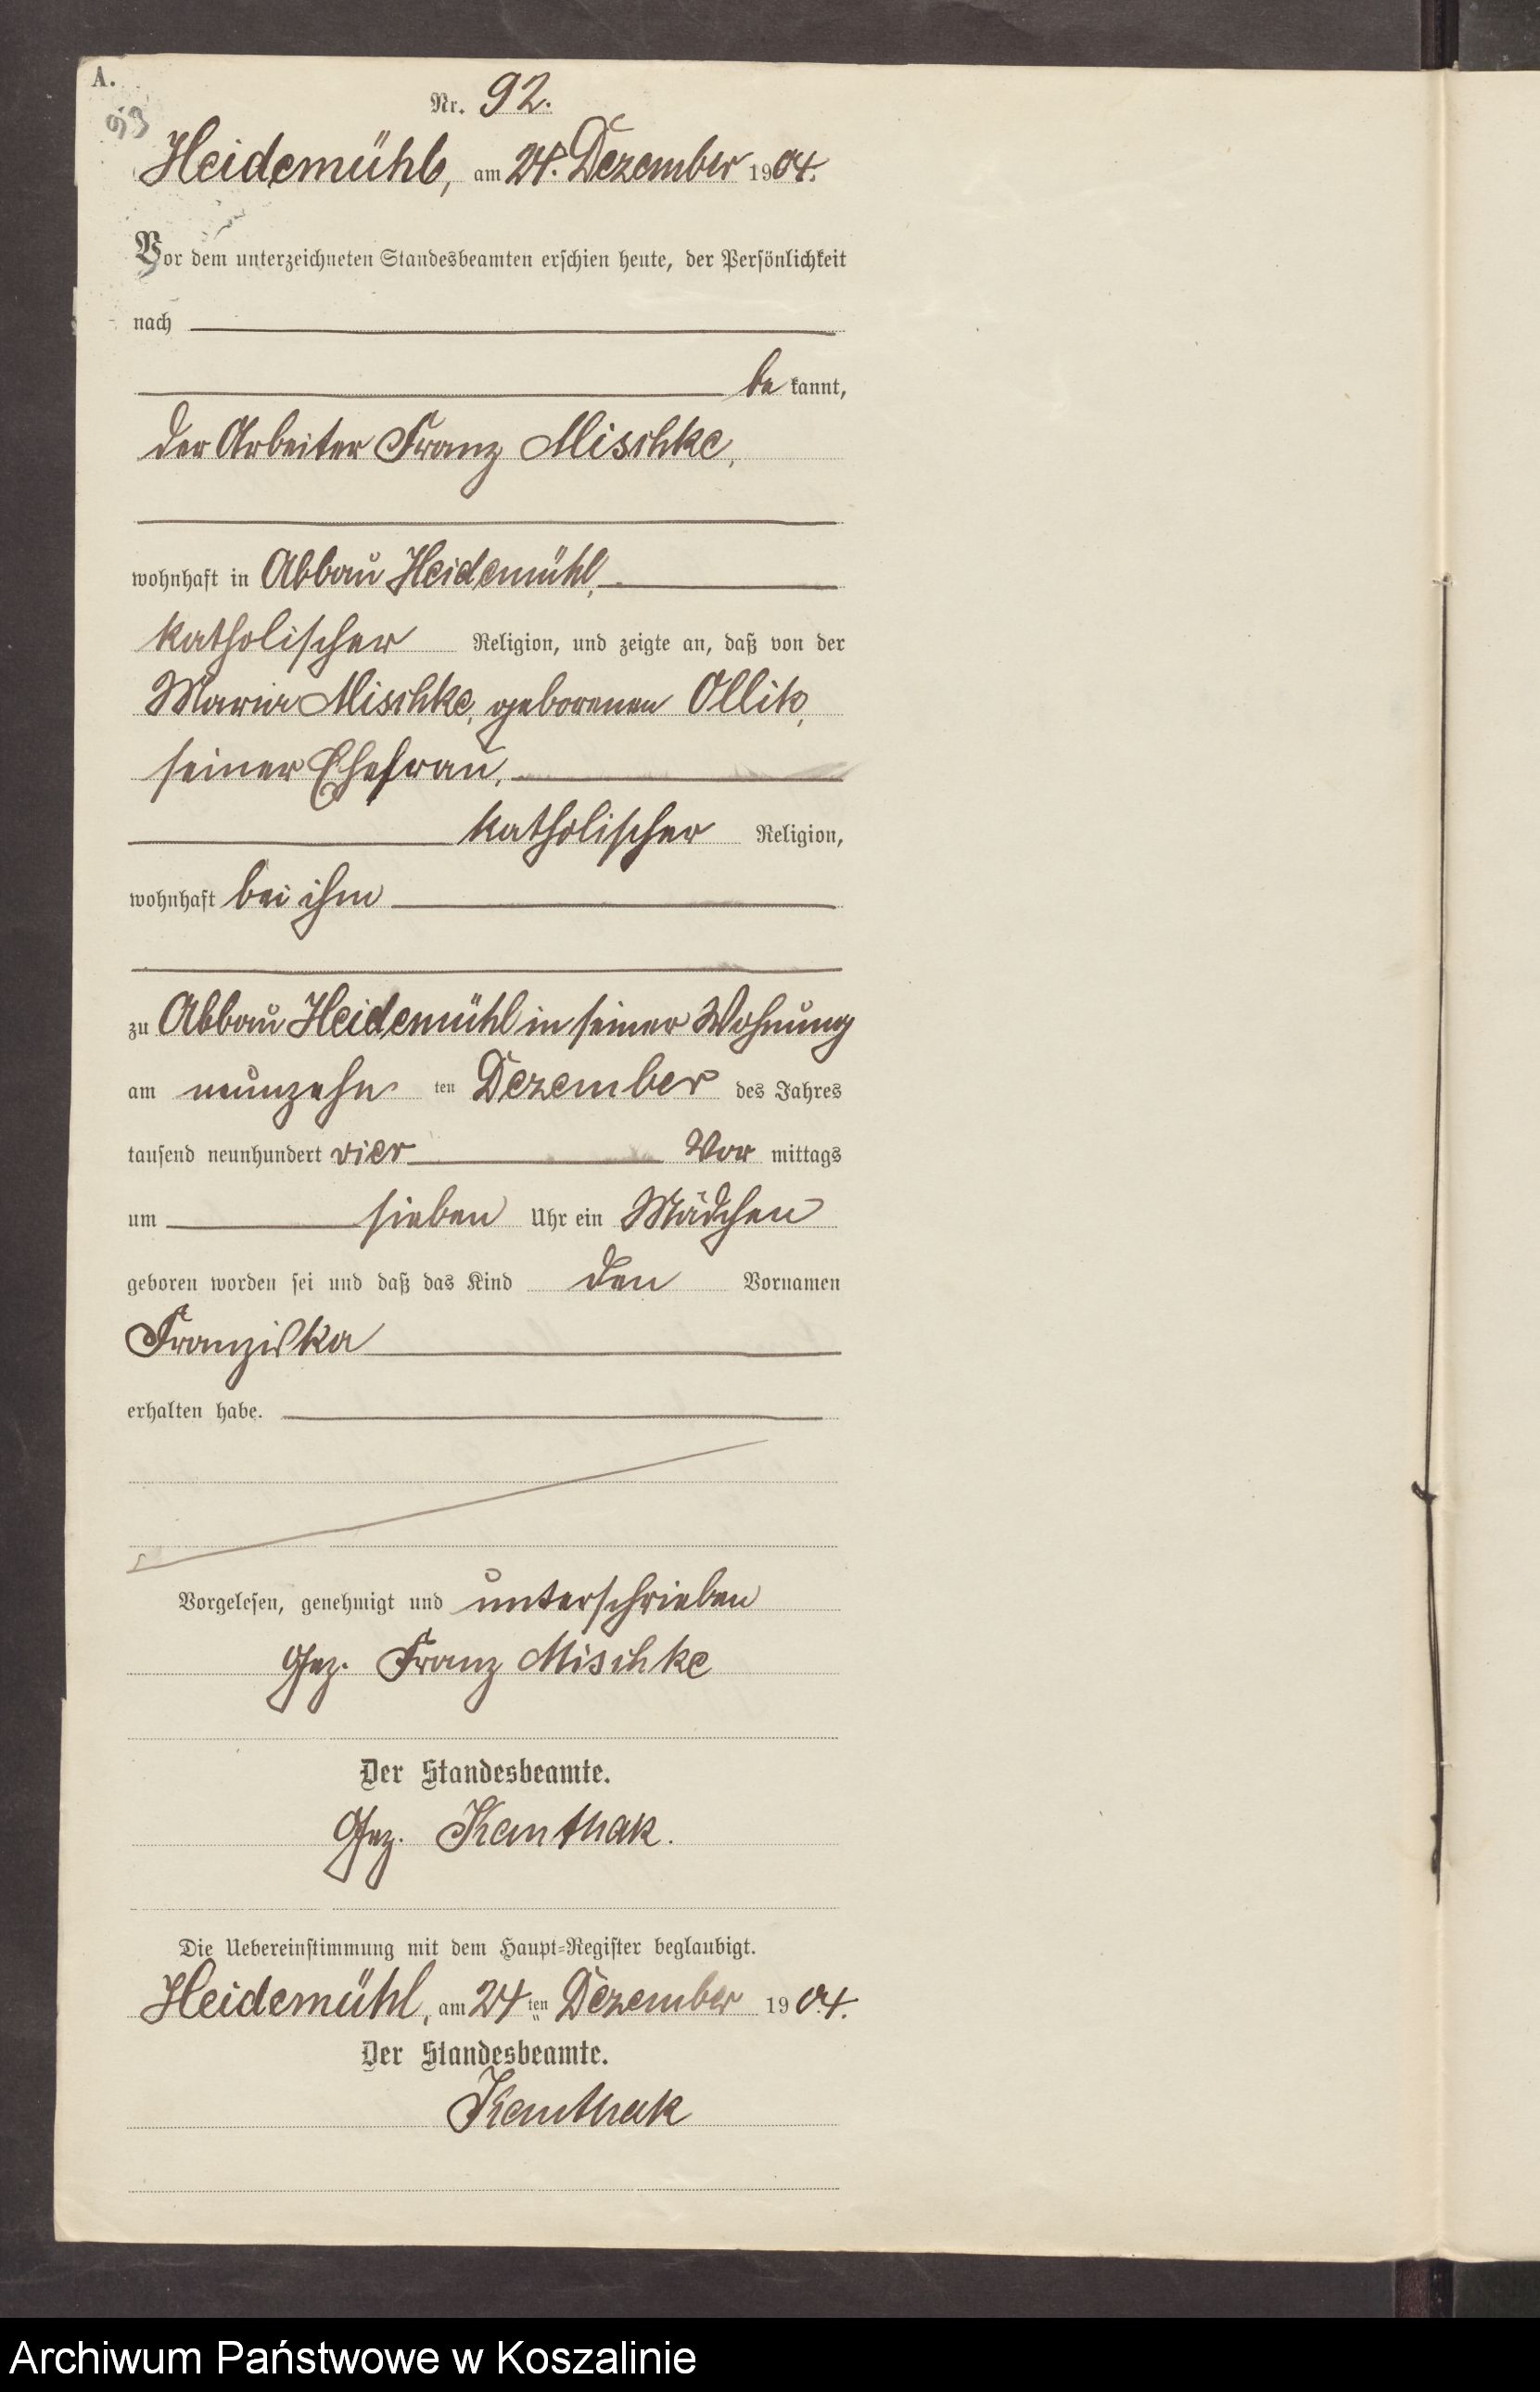 A.
93
Nr. 92.
Heidemühl, am 24. Dezember 1904.
Vor dem unterzeichneten Standesbeamten erschien heute, der Persönlichkeit
nach
be kannt,
der Arbeiter Franz Mischke,
wohnhaft in Abbau Heidemühl,
katholischer Religion, und zeigte an, daß von der
Maria Mischke, geborenen Ollik,
seiner Ehefrau,
katholischer Religion,
wohnhaft bei ihm
zu Abbau Heidemühl in seiner Wohnung
am neunzehn ten Dezember des Jahres
tausend neunhundert vier Vor mittags
um sieben Uhr ein Mädchen
geboren worden sei und daß das Kind den Vornamen
Franziska
erhalten habe.
Vorgelesen, genehmigt und unterschrieben
Gez. Franz Mischke
Der Standesbeamte.
Gez. Kanthak.
Die Uebereinstimmung mit dem Haupt-Register beglaubigt.
Heidemühl, am 24 ten Dezember 1904.
Der Standesbeamte.
Kanthak
Archiwum Państwowe w Koszalinie